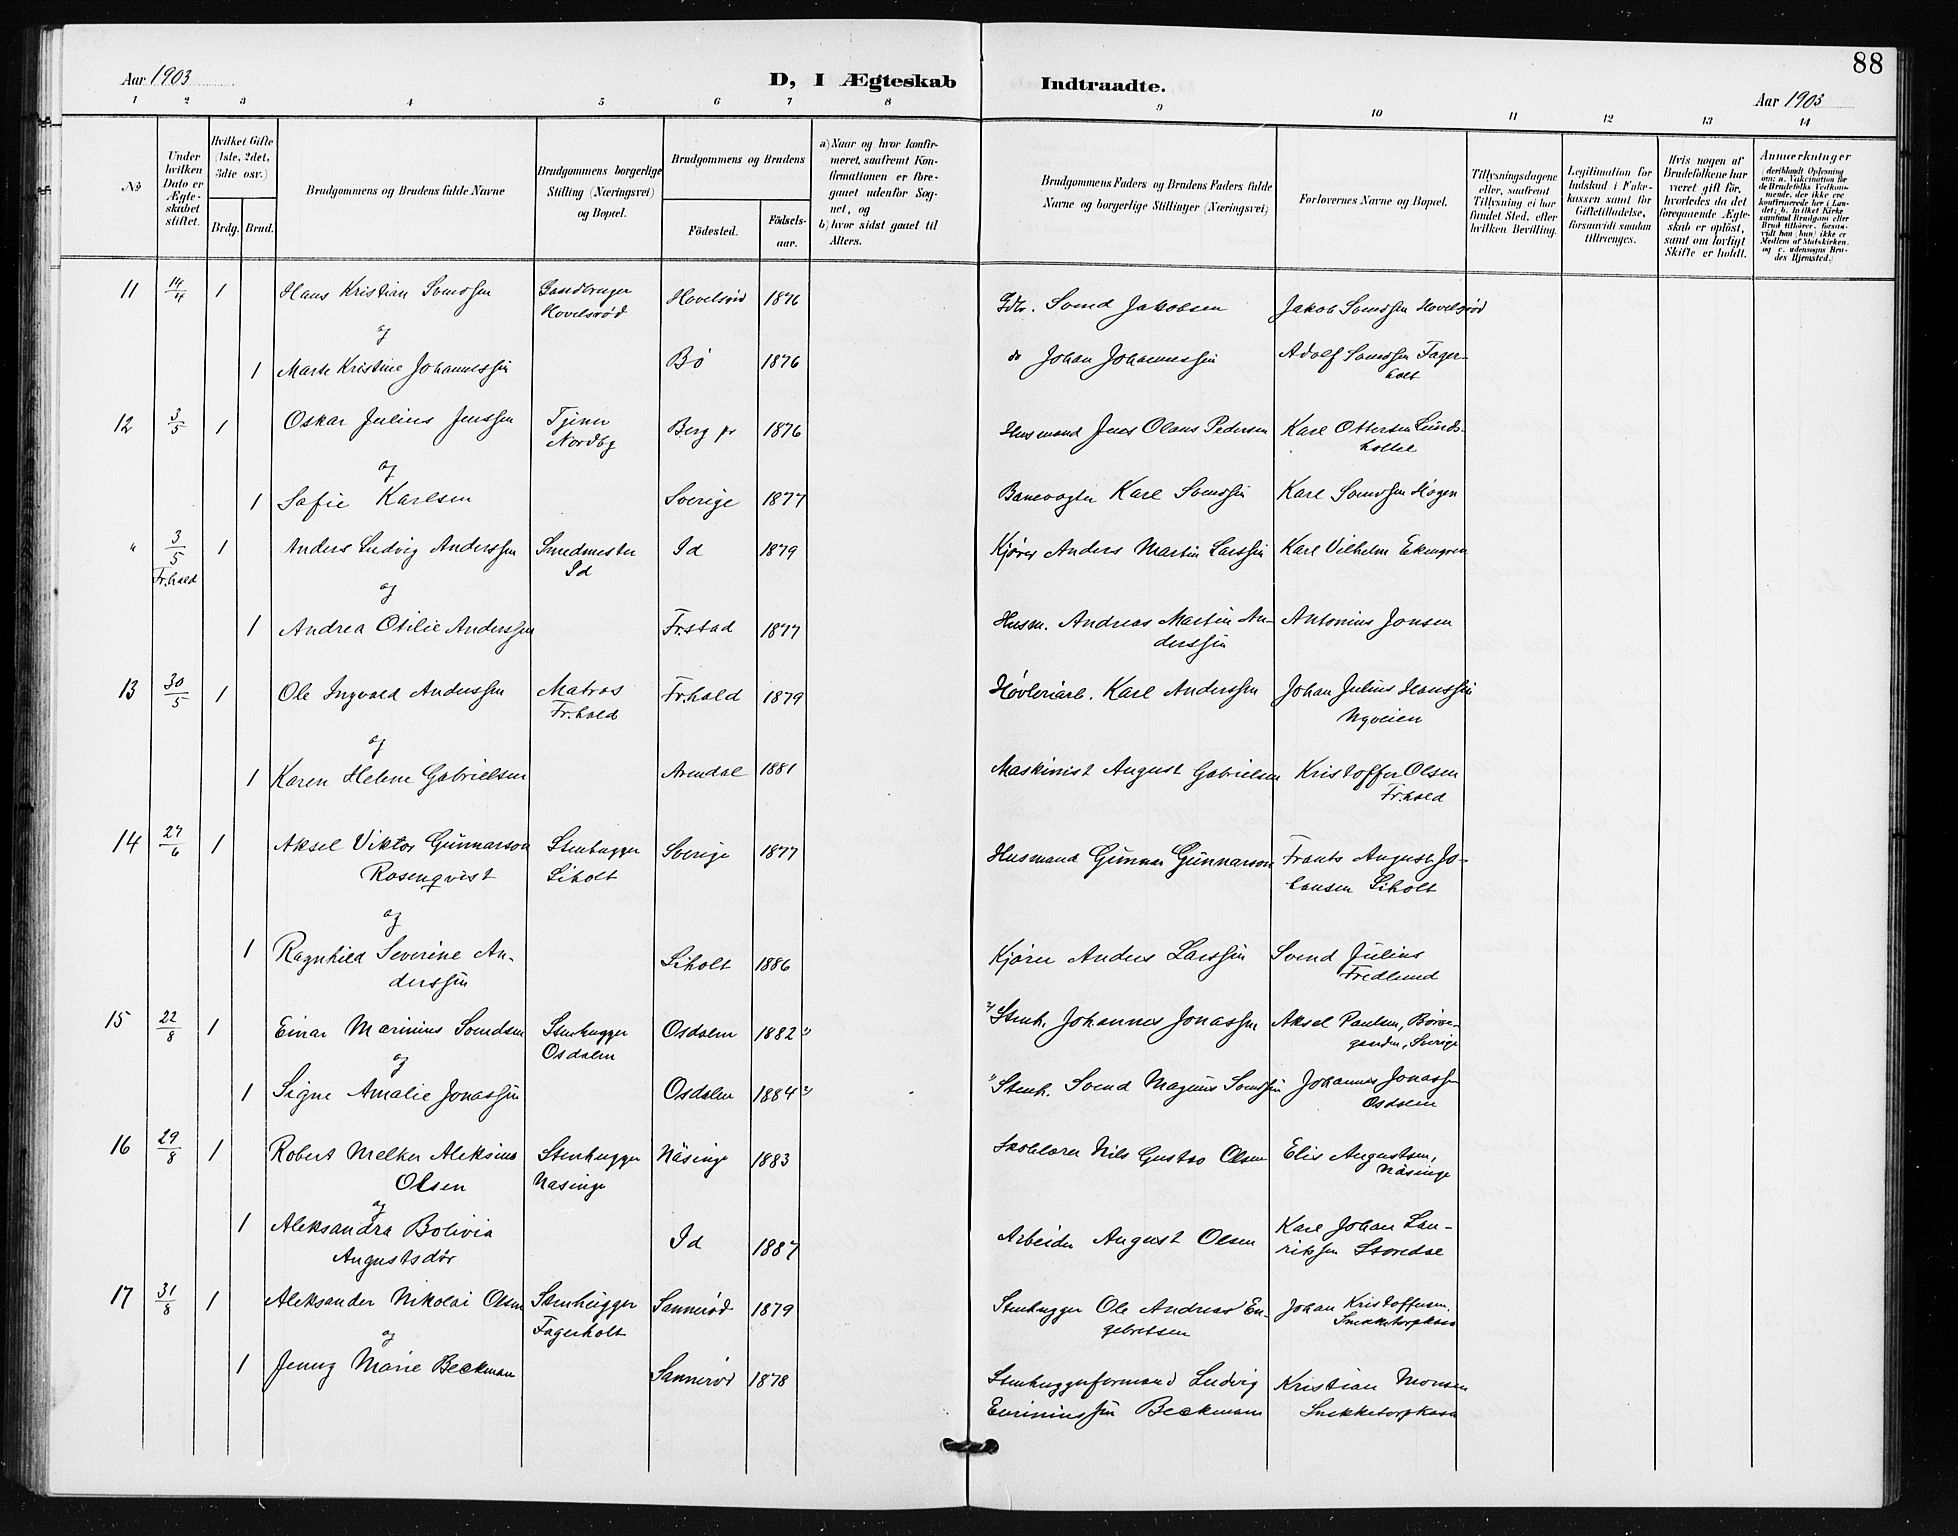 88
Aar 1903
D, I Ægteskab Indtraadte.
Aar 1903
1 2 3 4 5 6 7 8 9 10 11 12 13 14
No
Under hvilken Dato er Ægteskabet stiftet.
Hvilket Gifte (1ste, 2det, 3die osv.)
Brdg. Brud.
Brudgommens og Brudens fulde Navne
Brudgommens borgerlige Stilling (Næringsvei) og Bopæl.
Brudgommens og Brudens
Födested.
Födsels-aar.
a) Naar og hvor konfirmeret, saafremt Konfirmationen er foregaaet udenfor Sognet, og
b) hvor sidst gaaet til Alters.
Brudgommens Faders og Brudens Faders fulde Navne og borgerlige Stillinger (Næringsvei)
Forlovernes Navne og Bopæl.
Tillysningsdagene eller, saafremt Tillysning ei har fundet Sted, efter hvilken Bevilling.
Legitimation for Indskud i Enkekassen samt for Giftetilladelse, forsaavidt saadan tiltrænges.
Hvis nogen af Brudefolkene har været gift før, hvorledes da det foregaaende Ægteskab er opløst, samt om lovligt Skifte er holdt.
Anmærkninger
(deriblandt Oplysning om: a. Vaccination for de Brudefolks Vedkommende, der ikke ere konfirmerede her i Landet; b. hvilket Kirkesamfund Brudgom eller Brud tilhører, forsaavidt han (hun) ikke er Medlem af Statskirken, og c. udensogns Brudes Hjemsted.)
11 14/4 1 Hans Kristian Svendssen Gaardbruger Hovelsrød 1876 Gdbr. Svend Jakobsen Jakob Svendssen Hovelsrød
Hovelsrød
og
1 Marte Kristine Johannessen Bø 1876 do Johan Johannessen Adolf Svendssen Fager-
holt
12 3/5 1 Oskar Julius Jenssen Tjener Berg pr 1876 Husmand Jens Olaus Pedersen Karl Ottersen Lunds-
Nordby holtet
og
1 Safie Karlsen Sverige 1877 Banevogter Karl Svendssen Karl Svendssen Hogen
" 3/5 1 Anders Ludvig Anderssen Smedmester Id 1879 Kjører Anders Martin Larssen Karl Vilhelm Ekengren
Fr.hald Id
og
1 Andrea Otilie Anderssen Fr.stad 1877 Husm. Andreas Martin An- Antonius Jonsen
derssen
13 30/5 1 Ole Ingvald Anderssen Matros Fr.hald 1879 Høvleriarb. Karl Anderssen Johan Julius Hanssen
Fr.hald Nyveien
og
1 Karen Helene Gabrielsen Arendal 1881 Maskinist August Gabrielsen Kristoffer Olsen
Fr.hald
14 27/6 1 Aksel Viktor Gunnarson Stenhugger Sverige 1877 Husmand Gunnar Gunnarson Frants August Jo-
Rosenqvist Liholt hansen Liholt
og
1 Ragnhild Severine An- Liholt 1886 Kjører Anders Larssen Svend Julius
derssen Fredlund
15 22/8 1 Einar Marinius Svendsen Stenhugger Osdalen 1882 1) 2) Stenh. Johannes Jonassen Aksel Paulsen,
Osdalen Sverige
og
1 Signe Amalie Jonassen Osdalen 1884 2) 1) Stenh. Svend Magnus Svendssen Johannes Jonassen
Osdalen
16 29/8 1 Robert Melker Aleksius Stenhugger Näsinge 1883 Skolelærer Nils Gustav Olsen Elis Augustsen,
Olsen Näsinge Näsinge
og
1 Aleksandra Bolivia Id 1887 Arbeider August Olsen Karl Johan Lau-
Augustsdør ritssen Storedal
17 31/8 1 Aleksander Nikolai Olsen Stenhugger Sannerød 1879 Stenhugger Ole Andreas En- Johan Kristoffersen,
Fagerholt gebretsen Snekketorpkasa
og
1 Jenny Marie Beckman Sannerød 1878 Stenhuggerformand Ludvig Kristian Monsen
Beckman Snekketorpkasa